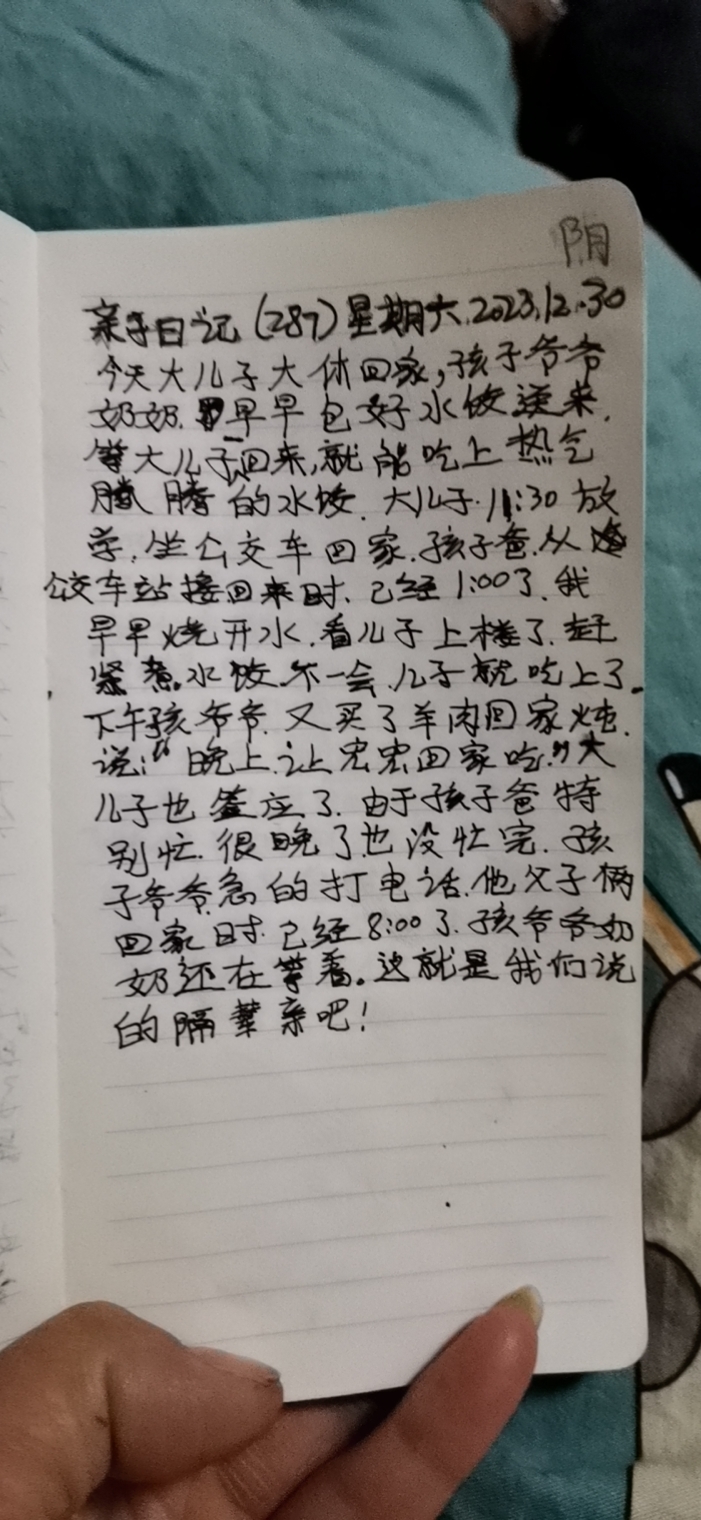 阴
亲子日记(287)星期六.2023.12.30
今天大儿子大休回家,孩子爷爷
奶奶.早早包好水饺送来.
等大儿子回来,就能吃上热气
腾腾的水饺.大儿子.11:30放
学.坐公交车回家.孩子爸.从
公交车站接回来时.已经1:00了.我
早早烧开水.看儿子上楼了.赶
紧煮.水饺.不一会.儿子就吃上了.
下午孩爷爷.又买了羊肉回家炖.
说:“晚上.让宏宏回家吃.”大
儿子也答应了.由于孩子爸特
别忙.很晚了也没忙完.孩
子爷爷.急的打电话.他父子俩
回家时.已经8:00了.孩爷爷奶
奶还在等着。这就是我们说
的隔辈亲吧!